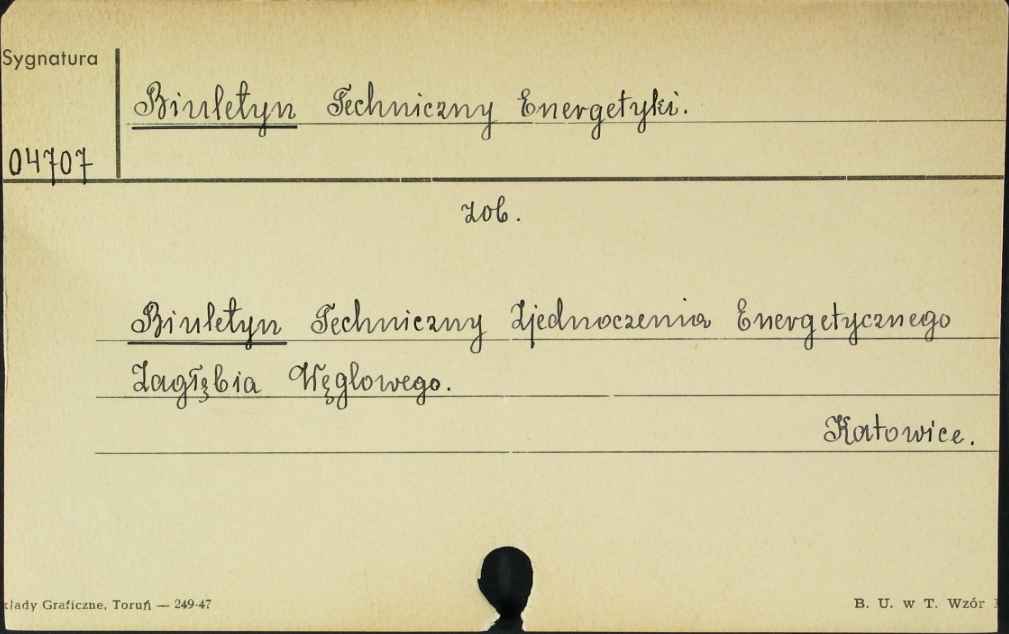 Sygnatura
Biuletyn Techniczny Energetyki.
04707
zob.
Biuletyn Techniczny Zjednoczenia Energetycznego
Zagłębia Węglowego.
Katowice.
kłady Graficzne, Toruń — 249-47
B. U. w T. Wzór